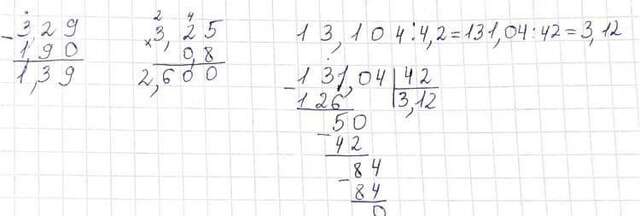 3,29
- 1,90
1,39
2 4
3,25
× 0,8
2,600
13,104:4,2=131,04:42=3,12
- 131,04 | 42
126 3,12
50
- 42
84
- 84
0